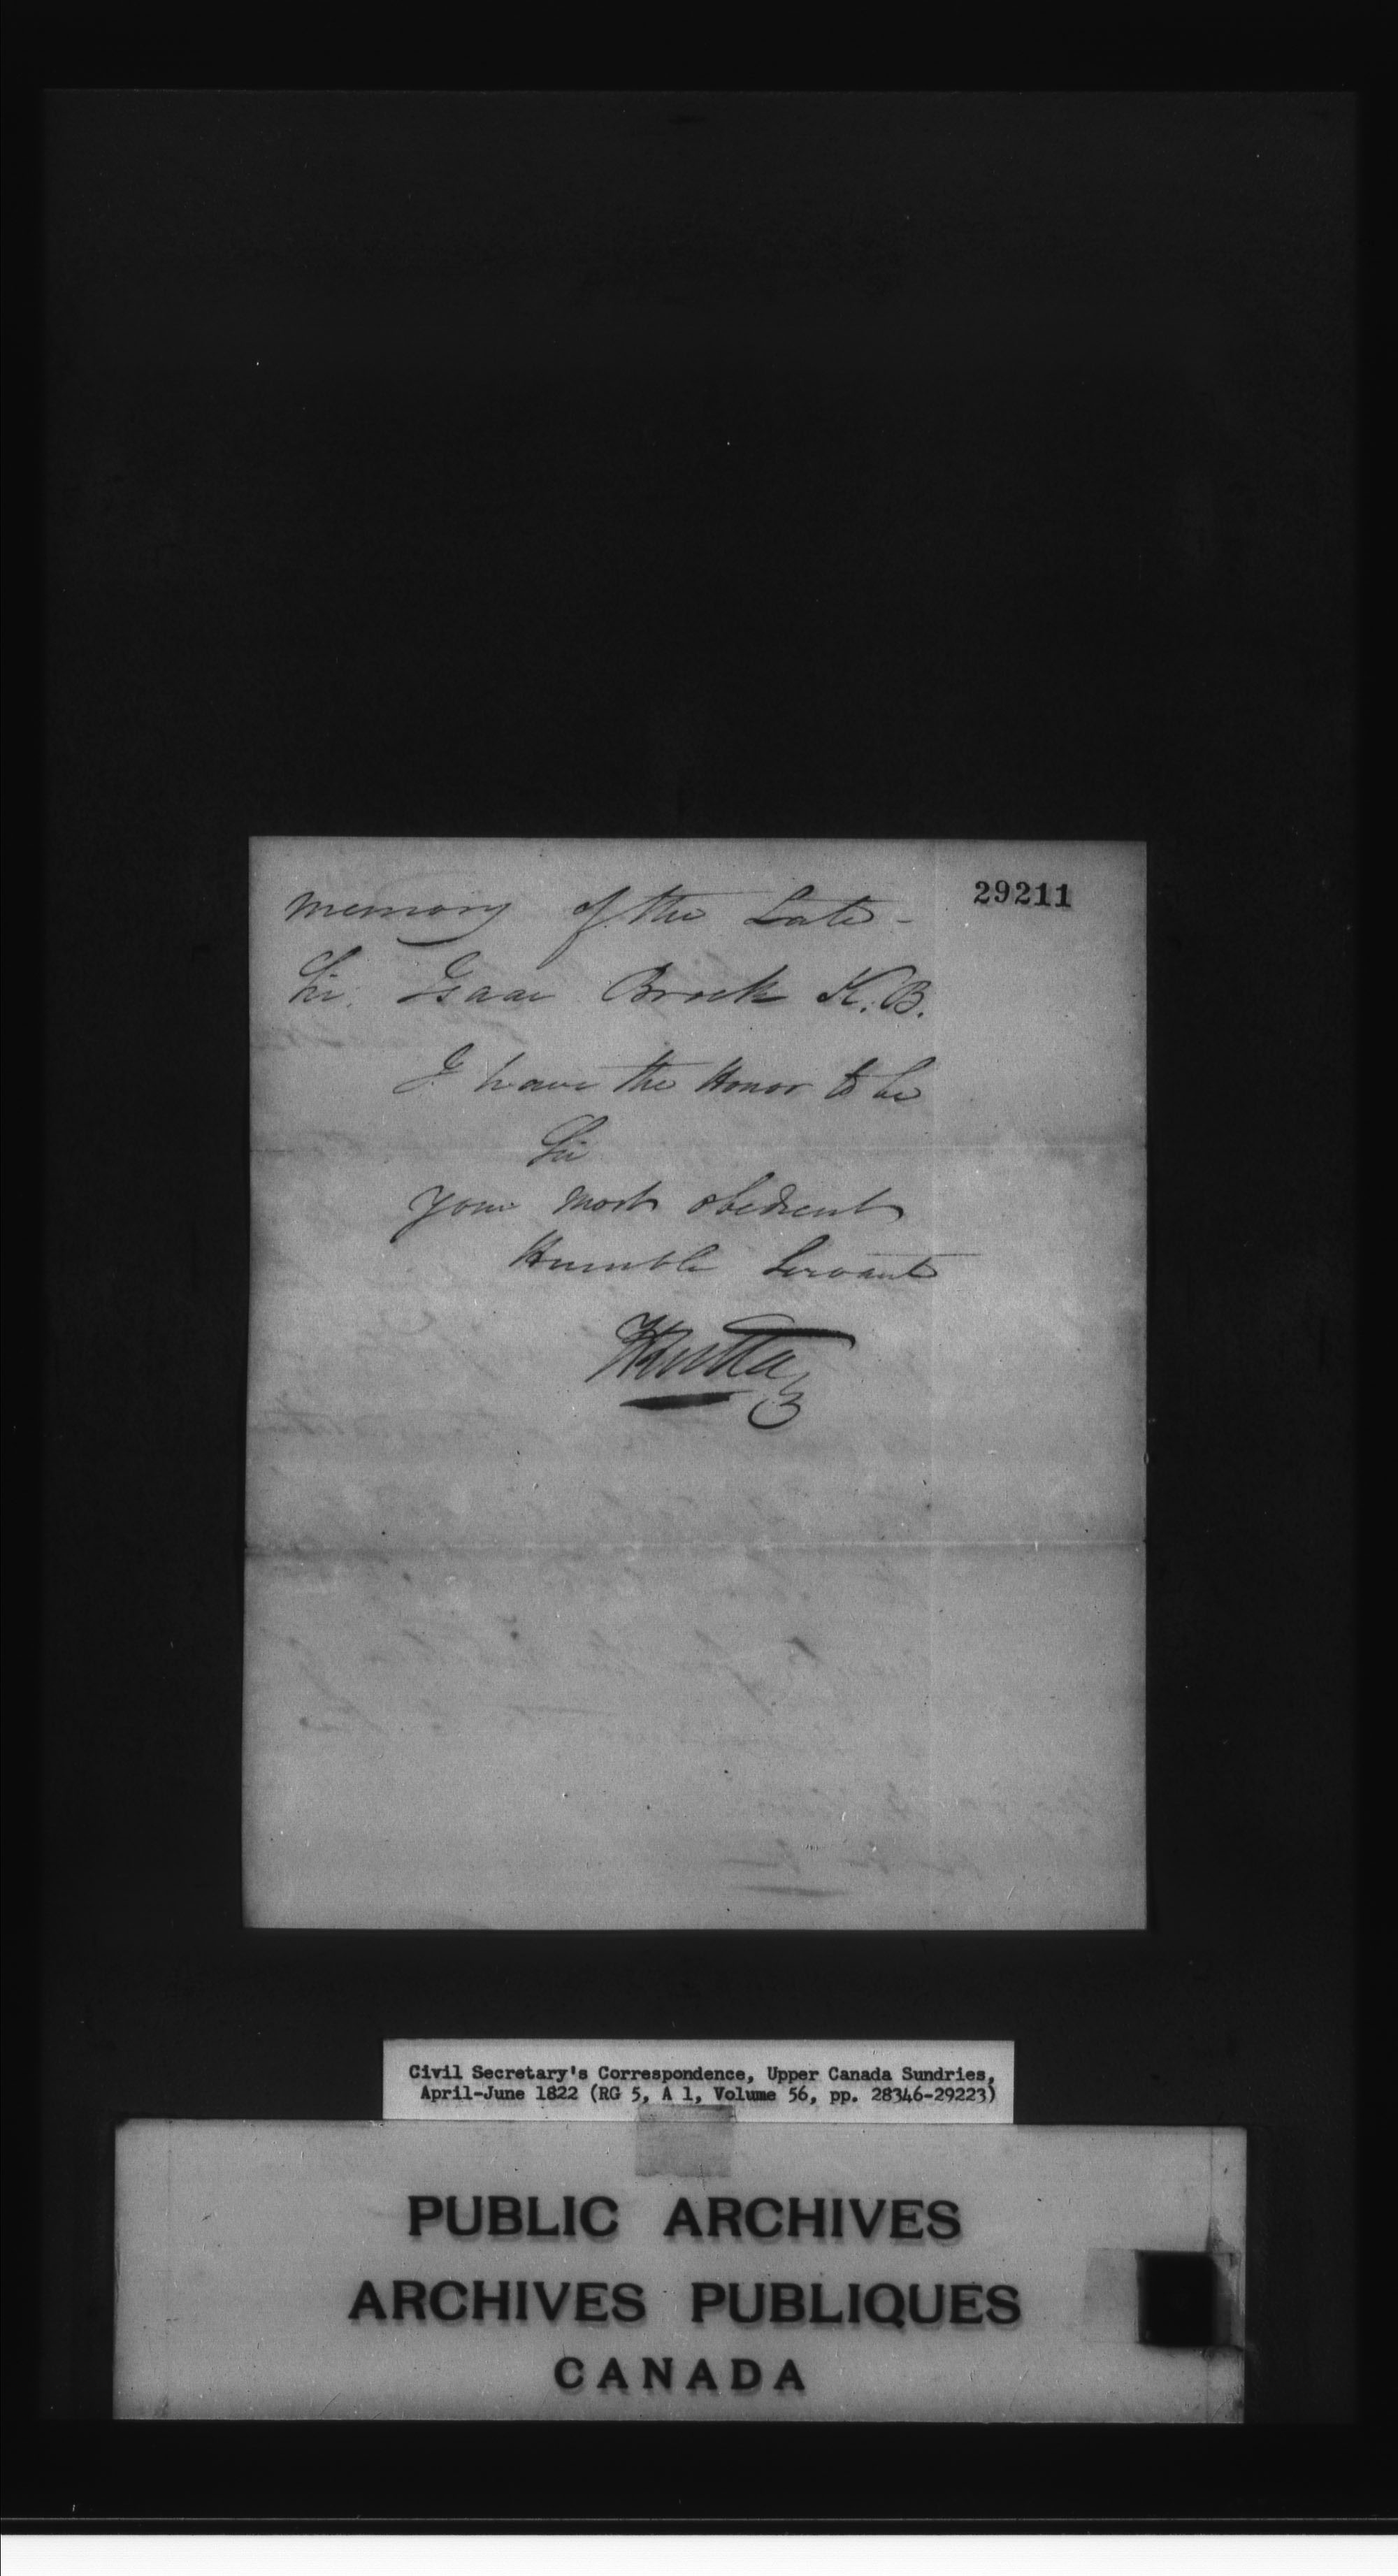 29211
memory of the Late -
Sir Isaac Brock K.B.
I have the Honor to be
Sir
your most obedient
Humble Servant
Civil Secretary's Correspondence, Upper Canada Sundries,
April-June 1822 (RG 5, A 1, Volume 56, pp. 28346-29223)
PUBLIC ARCHIVES
ARCHIVES PUBLIQUES
CANADA